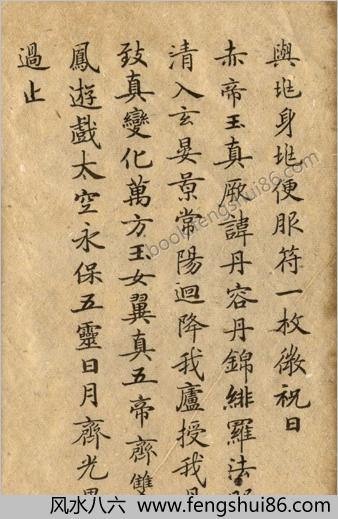 與垗身垗便服符一枚微祝曰
赤帝玉真厥諱丹容丹錦緋羅法
清入玄晏景常陽迴降我廬授我
致真變化萬方玉女翼真五帝齊雙
鳳遊戲太空永保五靈日月齊光
過止
book.fengshui86.com
风水八六－www.fengshui86.com